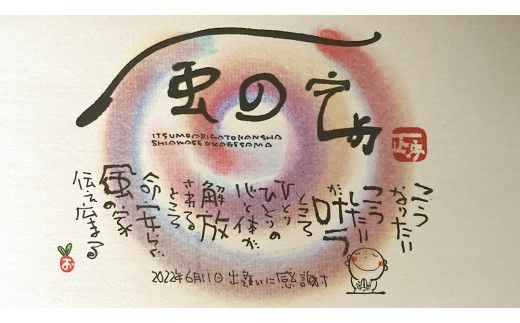 風の家
ITSUMOARIGATOKANSHA
SHIAWASEOKAGESAMA
こう
なりたい
こう
したい
が
叶う
ところ
ひとり
ひとりの
心と体が
解放
される
ところ
命安らぐ
風の家
伝え広まる
2022年6月11日 出逢いに感謝す
お